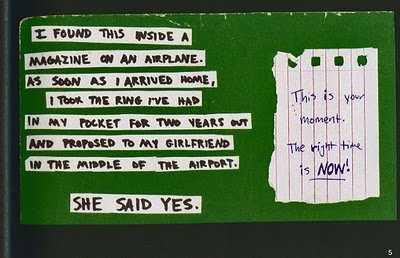 I FOUND THIS INSIDE A
MAGAZINE ON AN AIRPLANE.
AS SOON AS I ARRIVED HOME,
I TOOK THE RING I'VE HAD
IN MY POCKET FOR TWO YEARS OUT
AND PROPOSED TO MY GIRLFRIEND
IN THE MIDDLE OF THE AIRPORT.
SHE SAID YES.
This is your
moment.
The right time
is NOW!
5